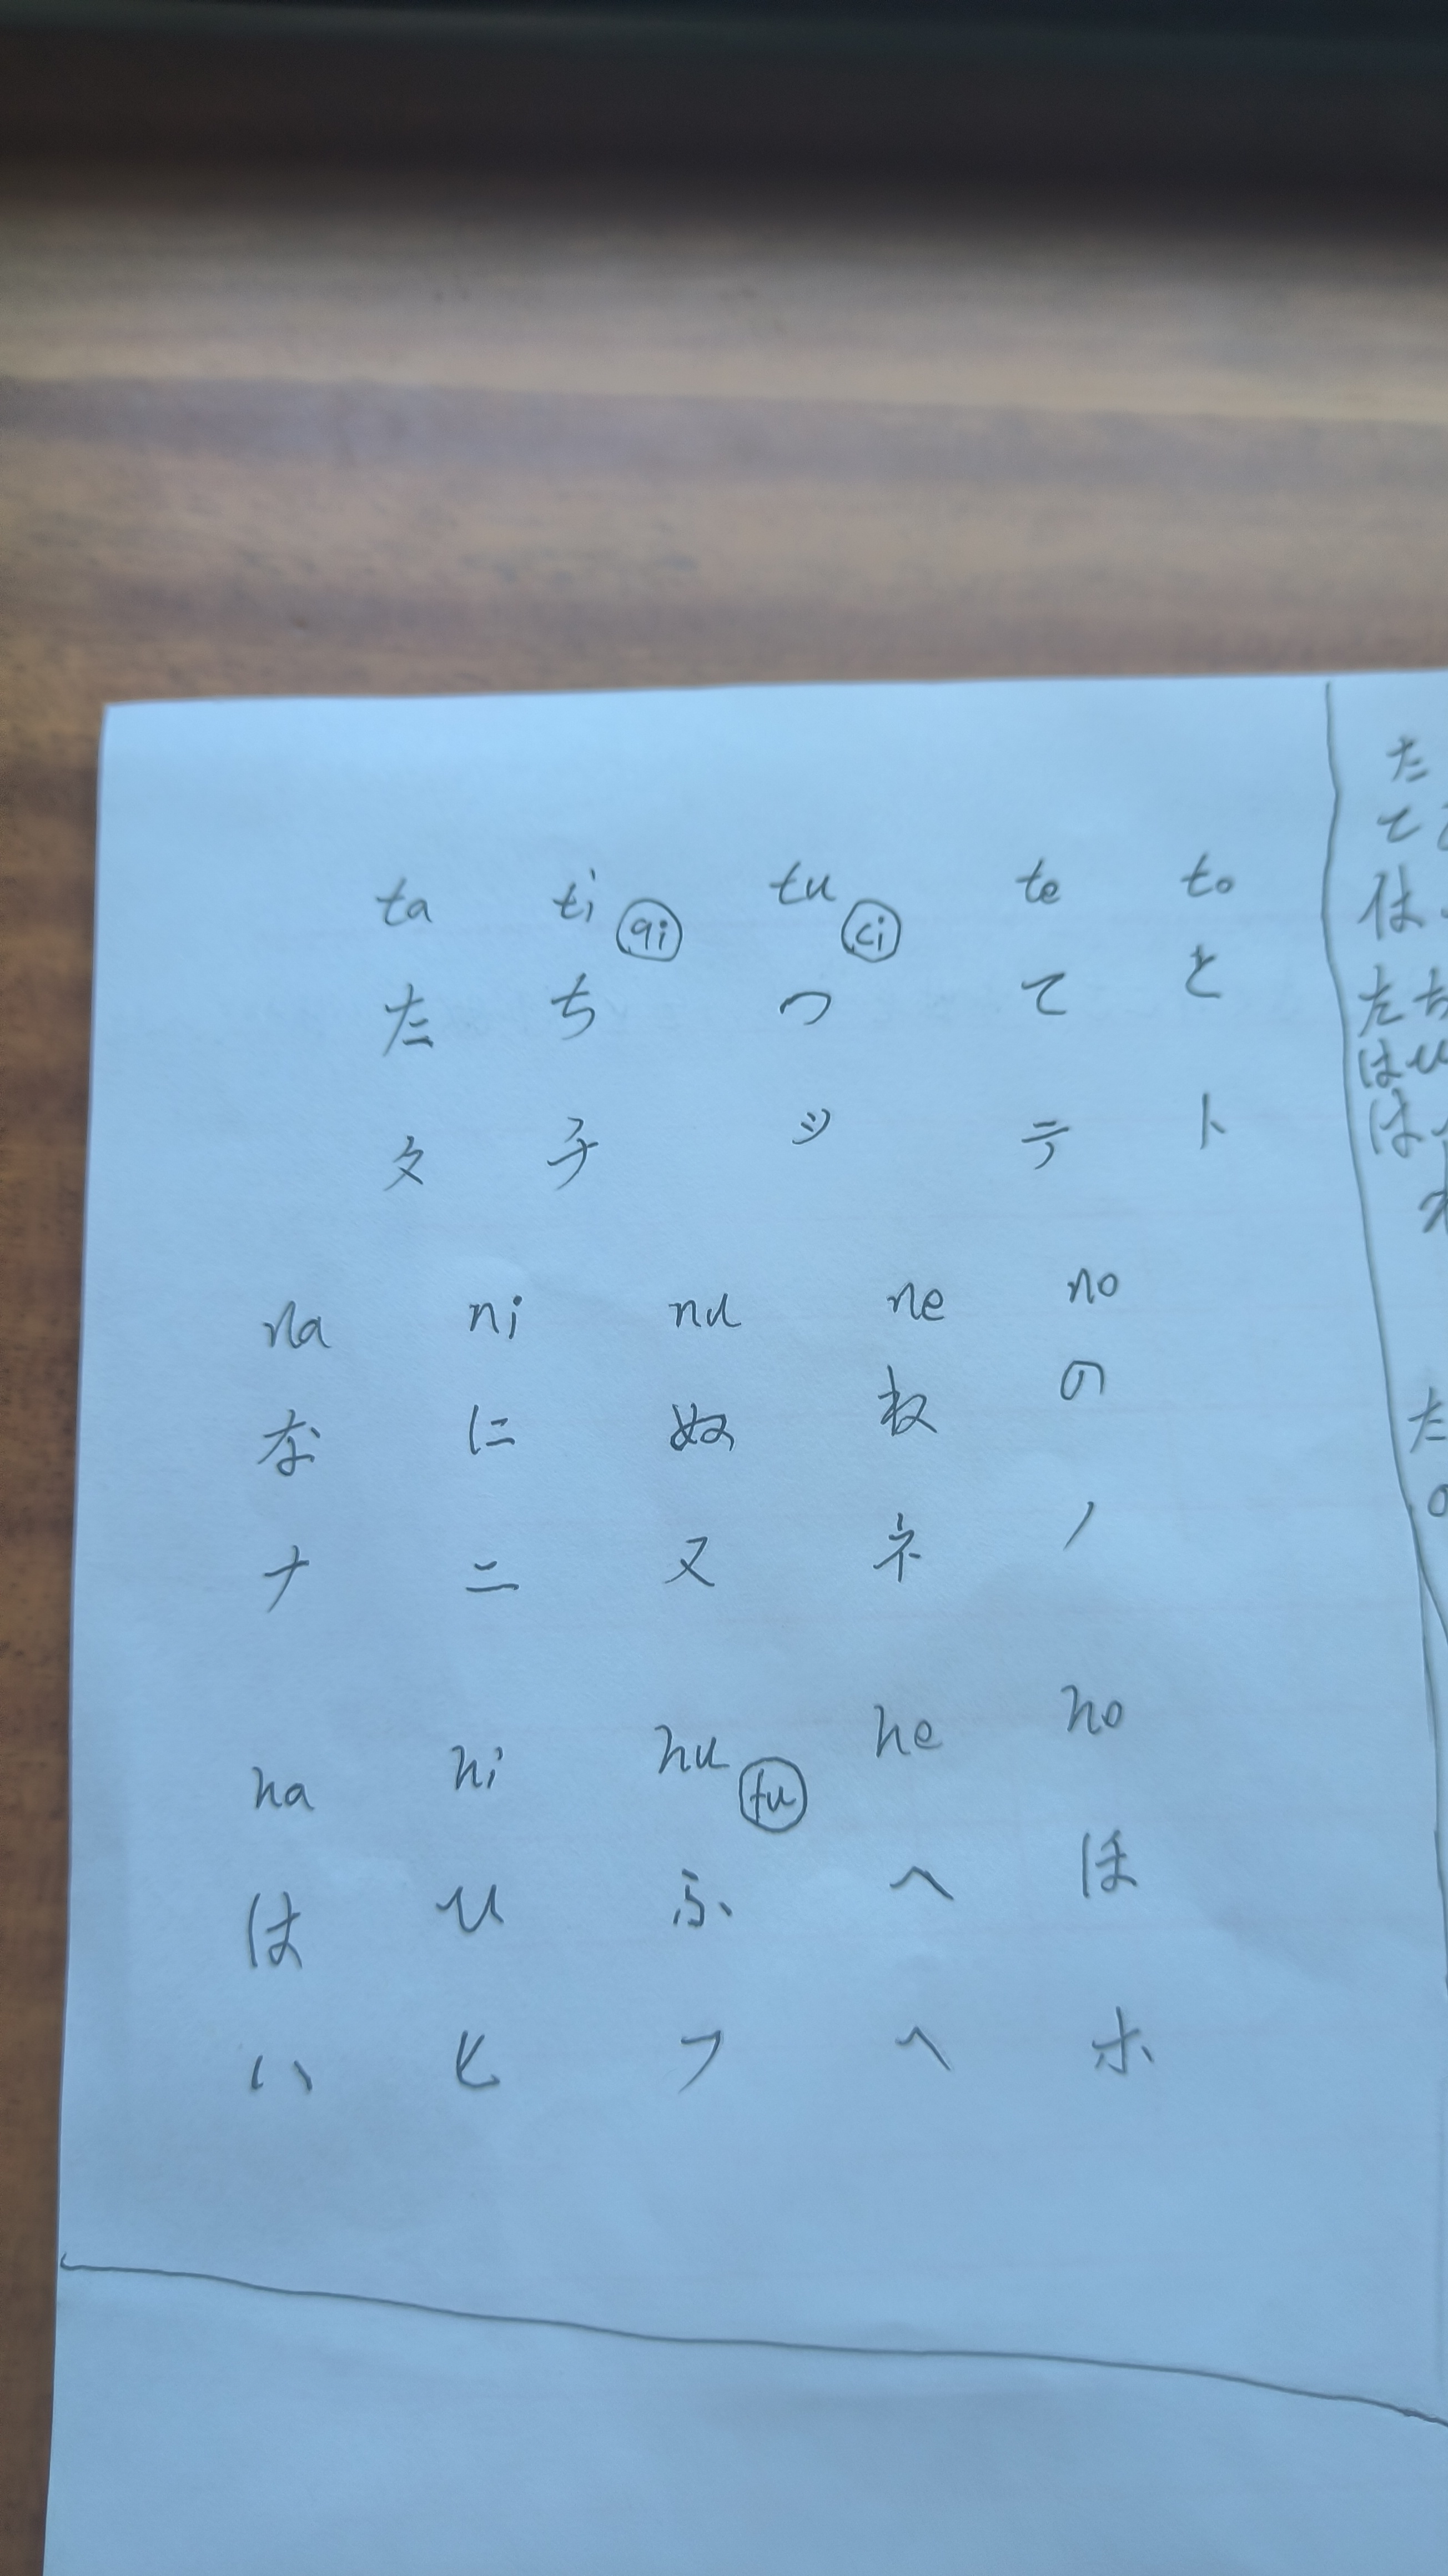 ta ti qi tu ci te to
た ち つ て と
タ チ ツ テ ト
na ni nu ne no
な に ぬ ね の
ナ ニ ヌ ネ ノ
ha hi hu fu he ho
は ひ ふ へ ほ
ハ ヒ フ ヘ ホ
た
て
は
たち
はひ
は
た
の